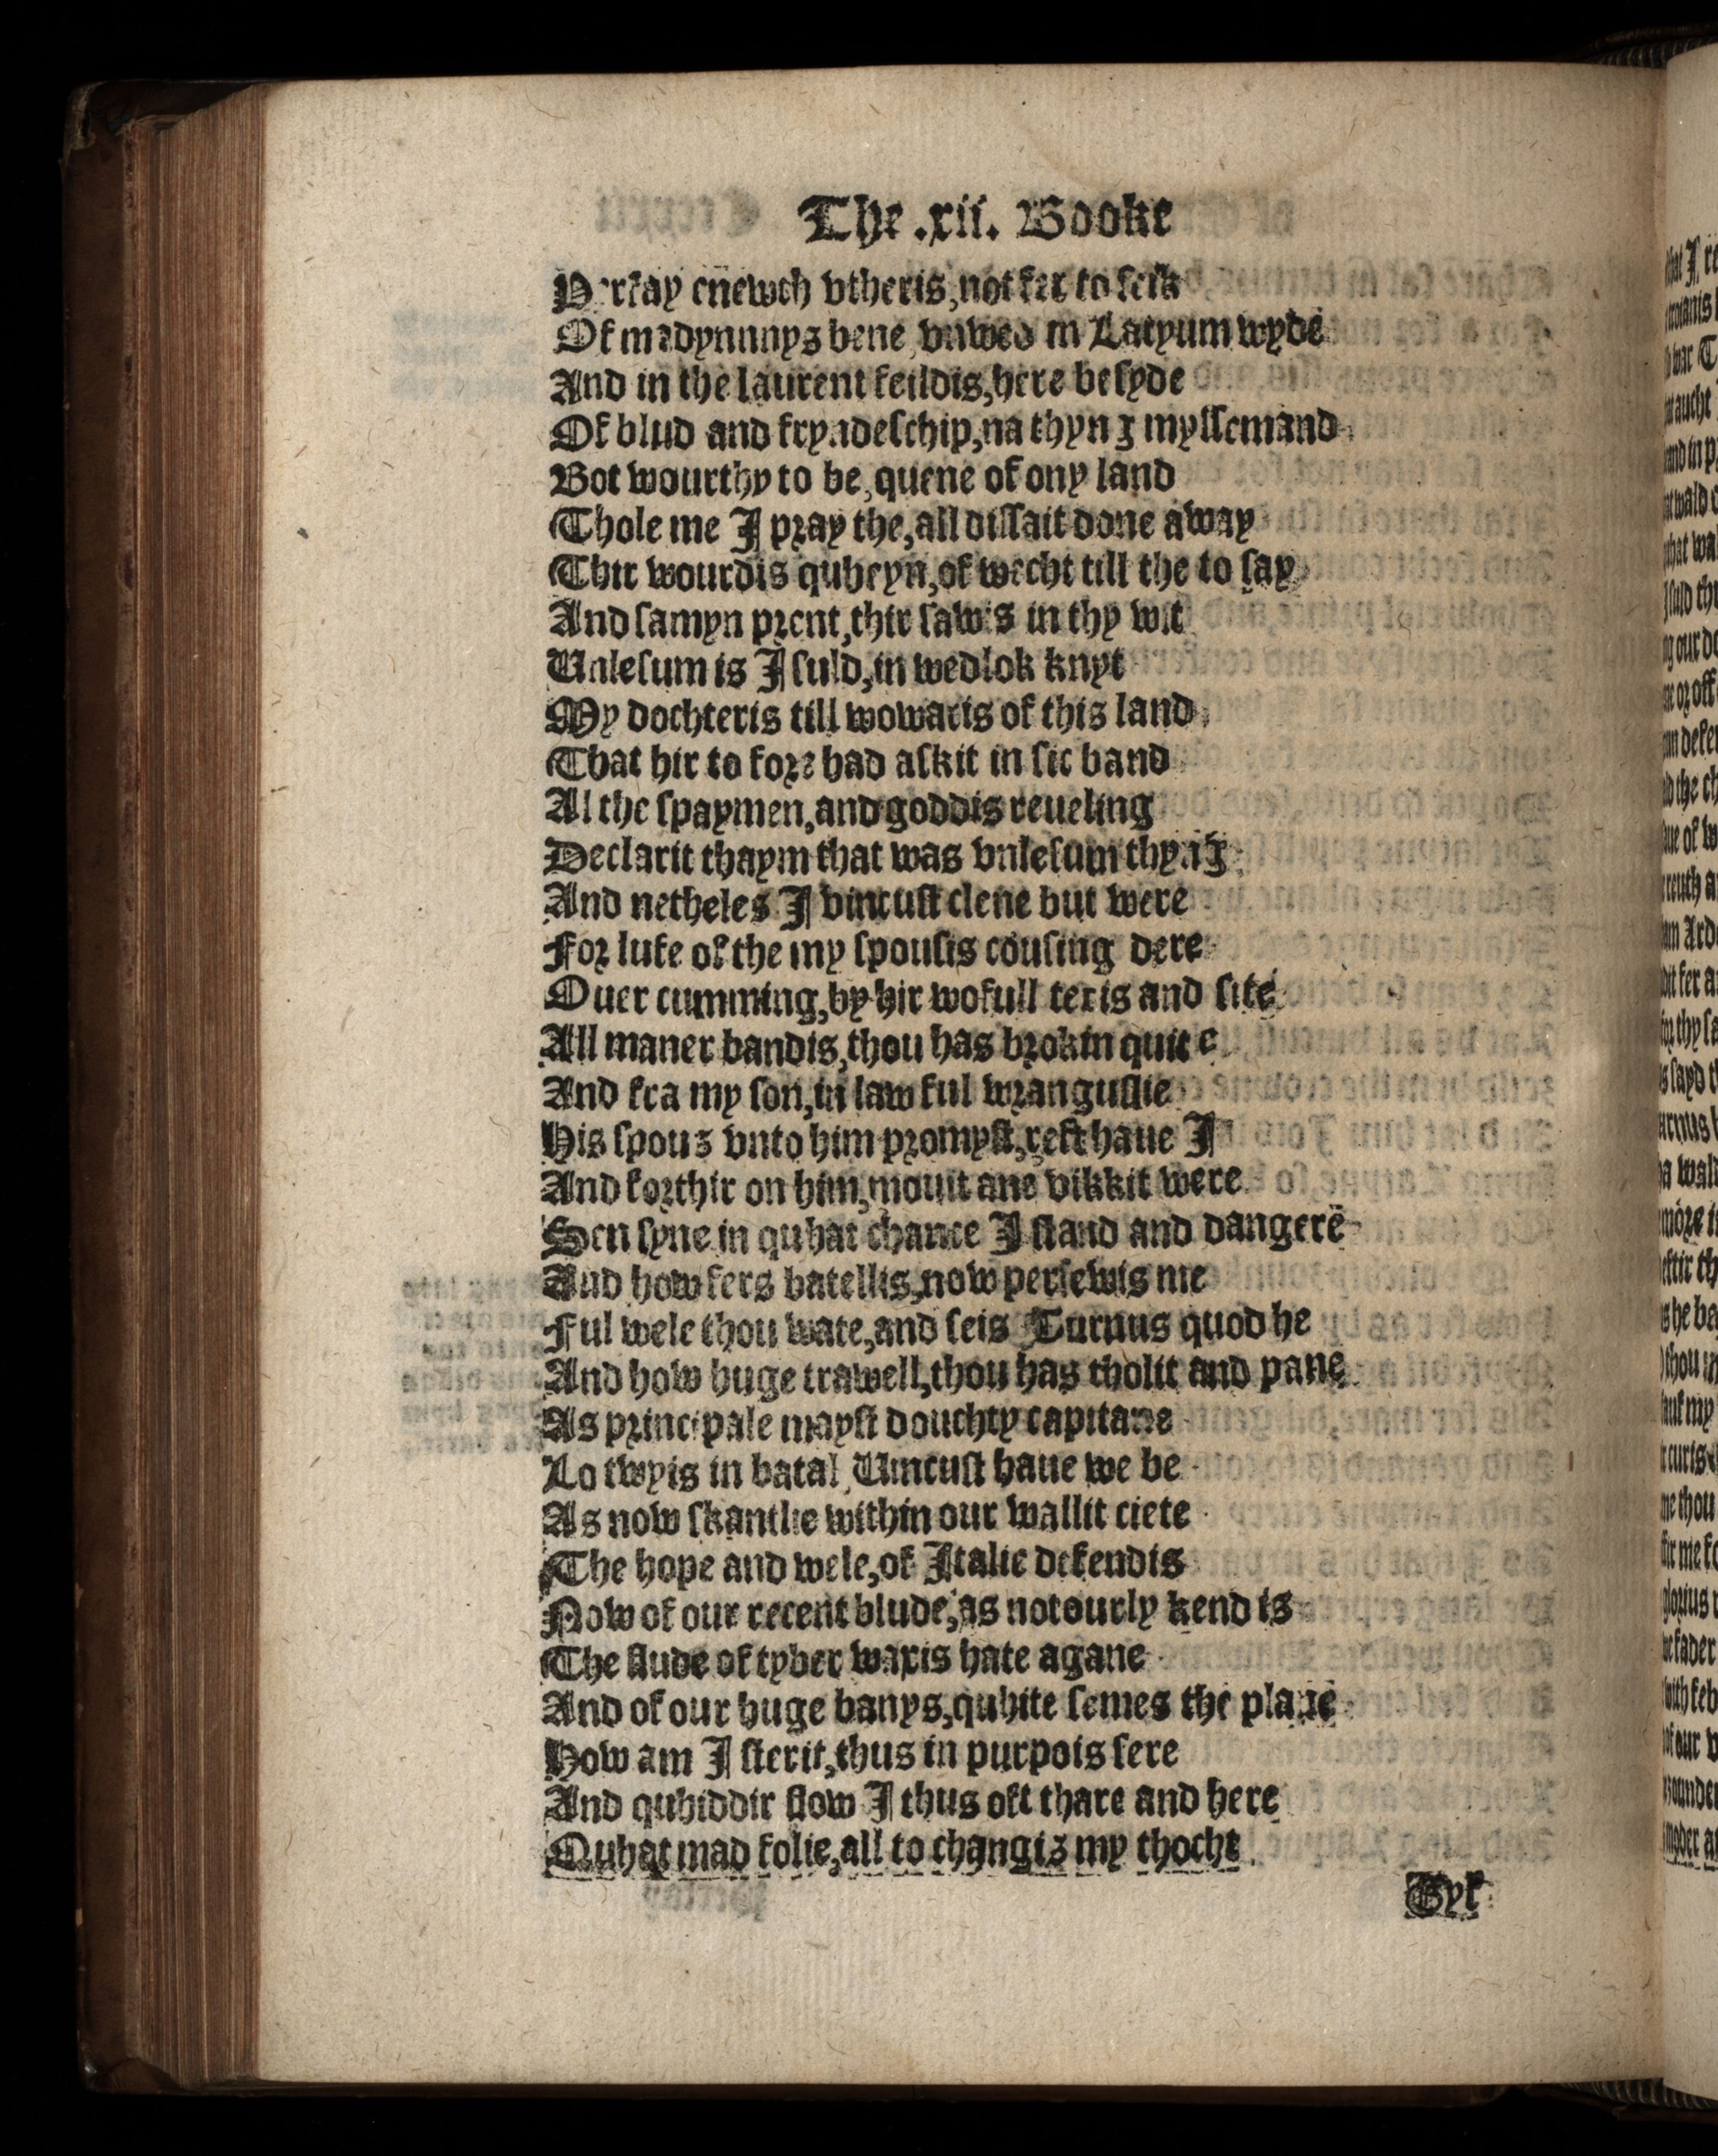 The .xii. Booke
Perfay enewch vtheris, not fer to seik
Of madynnnys bene, vnwed in Latyum wyde
And in the laurent feildis, here besyde
Of blud and fryndeschip, na thyng myssemand
Bot wourthy to be, quene of ony land
Thole me I pray the, all dissait done away
Thir wourdis quheyn, of wecht till the to say
And samyn prent, thir sawis in thy wit
Unlesum is I suld, in wedlok knyt
My dochteris till wowaris of this land
That hir to fore had askit in sic band
Al the spaymen, and goddis reueling
Declarit thaym that was vnlesum thyng
And netheles I vincust clene but were
For lufe of the my spousis cousing dere
Ouer cumming, by hir wofull teris and site
All maner bandis, thou has brokin quite
And fra my son, in law ful wranguslie
His spous vnto him promyst, reft haue I
And forthir on him, mouit ane vikkit were
Sen syne in quhat chance I stand and dangere
And how fers batellis, now persewis me
Ful wele thou wate, and seis Turnus quod he
And how huge trawell, thou has tholit and pane
As principale mayst douchty capitane
Lo twyis in batal, Uincust haue we be
As now skantlie within our wallit ciete
The hope and wele, of Italie defendis
Now of our recent blude, as notourly kend is
The flude of tyber waxis hate agane
And of our huge banys, quhite semes the plane
How am I sterit, thus in purpois sere
And quhiddir flow I thus oft thare and here
Quhat mad folie, all to changis my thocht
Gyf